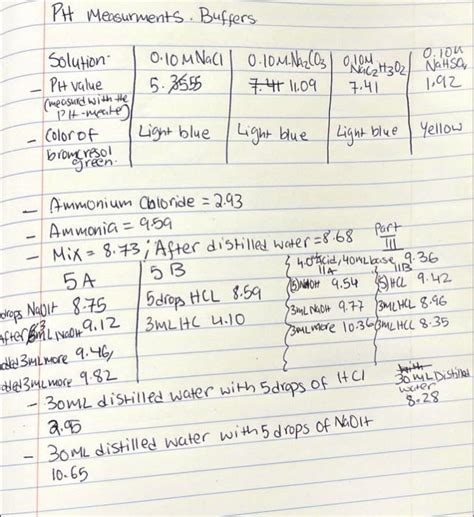 PH Measurments. Buffers
Solution: 0.10M NaCl 0.10M.Na2CO3 0.10M NaC2H3O2 0.10M NaHSO4
- PH value 5.3555 7.41 11.09 7.41 1.92
(measurd with the
PH-meater)
- Color of Light blue Light blue Light blue Yellow
bromcresol
green.
- Ammonium Chloride = 2.93
- Ammonia = 9.59
- Mix = 8.73; After distilled water = 8.68 Part III
5A 5B 4.0 acid, 40mL base 9.36
11A 11B
drops NaOH 8.75 5drops HCL 8.59 (5)NaOH 9.54 (5)HCL 9.42
After 3mL NaOH 9.12 3mL HC 4.10 3mL NaOH 9.77 3mL HCL 8.96
added 3mL more 9.46, 3mL more 10.36 3mL HCL 8.35
added 3mL more 9.82
- 30mL distilled water with 5 drops of HCl
2.95
30mL Distilled
water
8.28
- 30mL distilled water with 5 drops of NaOH
10.65